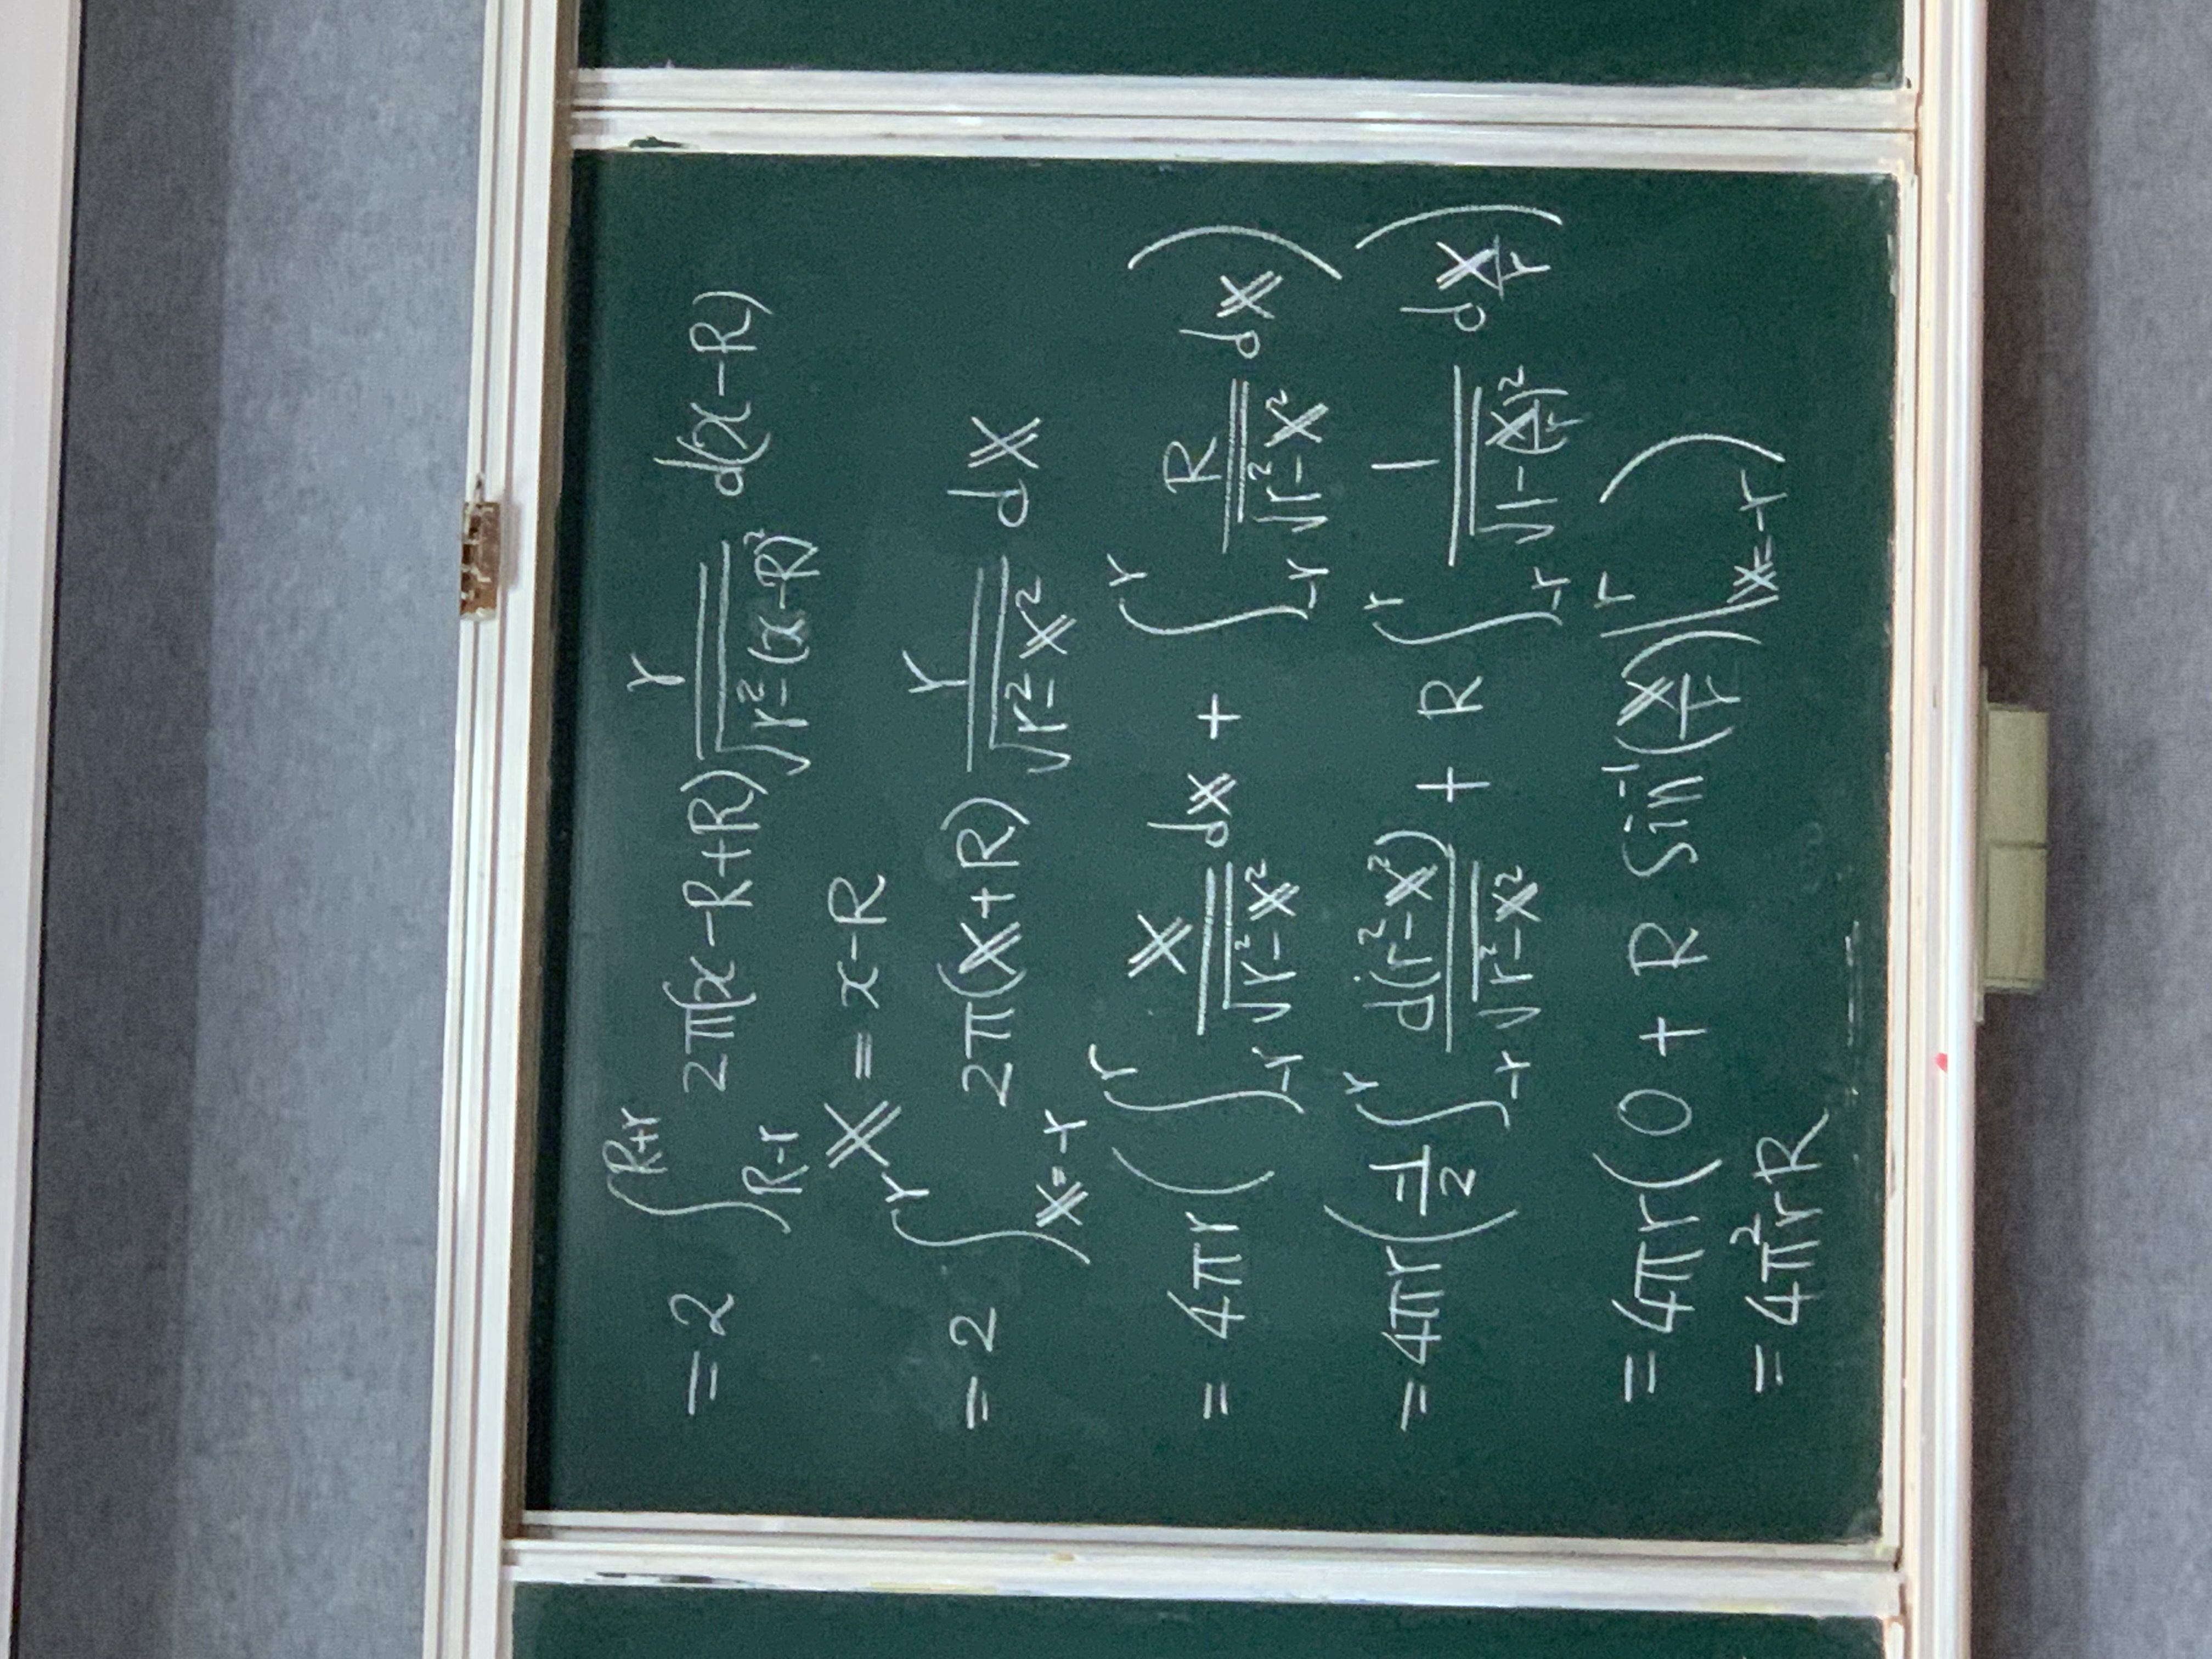 = 2 ∫_{R-r}^{R+r} 2π(x-R+R) r/√(r²-(x-R)²) d(x-R)
X = x-R
= 2 ∫_{X=-r}^{r} 2π(X+R) r/√(r²-X²) dX
= 4πr ( ∫_{-r}^{r} X/√(r²-X²) dX + ∫_{-r}^{r} R/√(r²-X²) dX )
= 4πr ( -1/2 ∫_{-r}^{r} d(r²-X²)/√(r²-X²) + R ∫_{-r}^{r} 1/√(1-(X/r)²) d X/r )
= 4πr ( 0 + R sin⁻¹(X/r) |_{X=-r}^{r} )
= 4π²rR